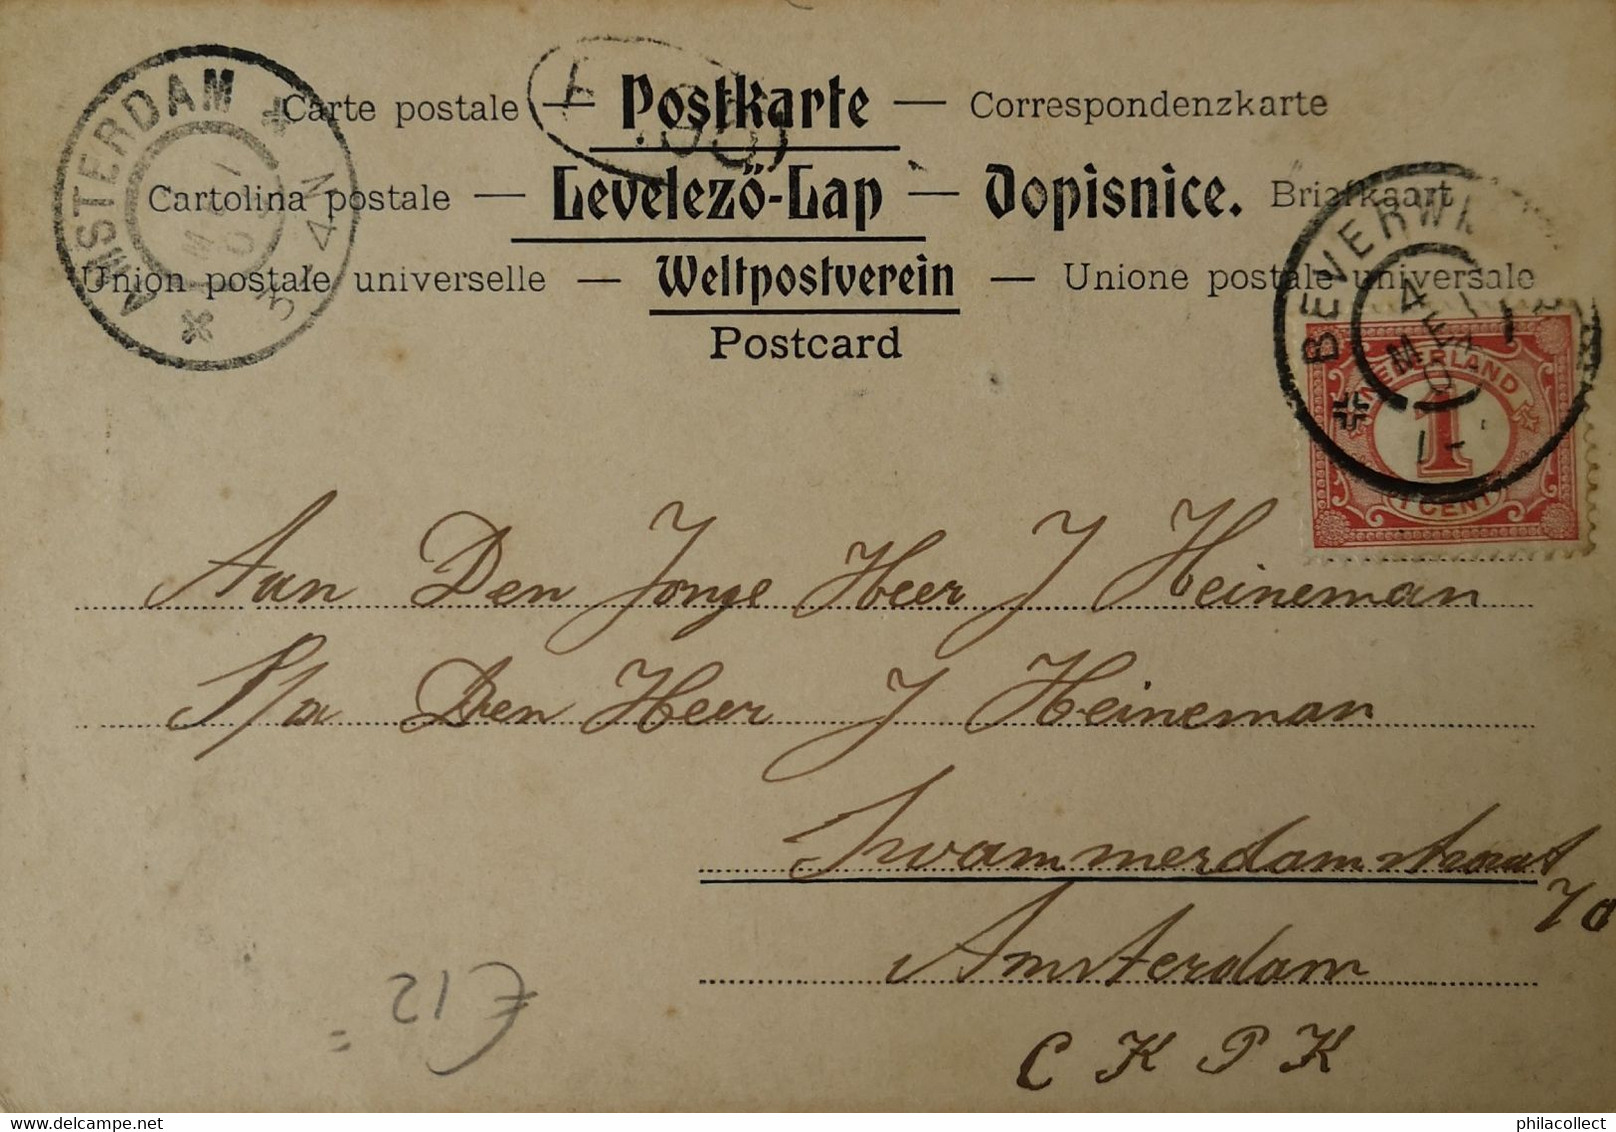 Carte postale — Postkarte — Correspondenzkarte
Cartolina postale — Levelező-Lap — Dopisnice. Briefkaart
Union postale universelle — Weltpostverein — Unione postale universale
Postcard
AMSTERDAM
3-4N
BEVERWI
4 MEI
NEDERLAND
1
1 CENT
Aan Den Jonge Heer J Heineman
P/a Den Heer J Heineman
Swammerdamstraat
70
Amsterdam
C K P K
€12=
philacollect